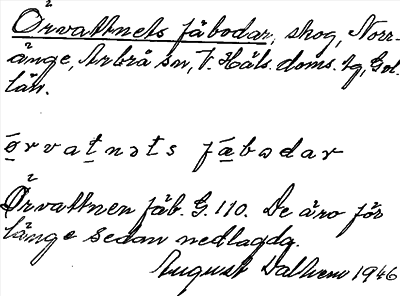 Örvattnets fäbodar, skog, Norr-
änge, Arbrå sn, V. Häls. doms. tg, Gvl.
län.
ørvatnəts fäbodar
Örvattnen fäb. G. 110. De äro för
länge sedan nedlagda.
August Dalhem 1946